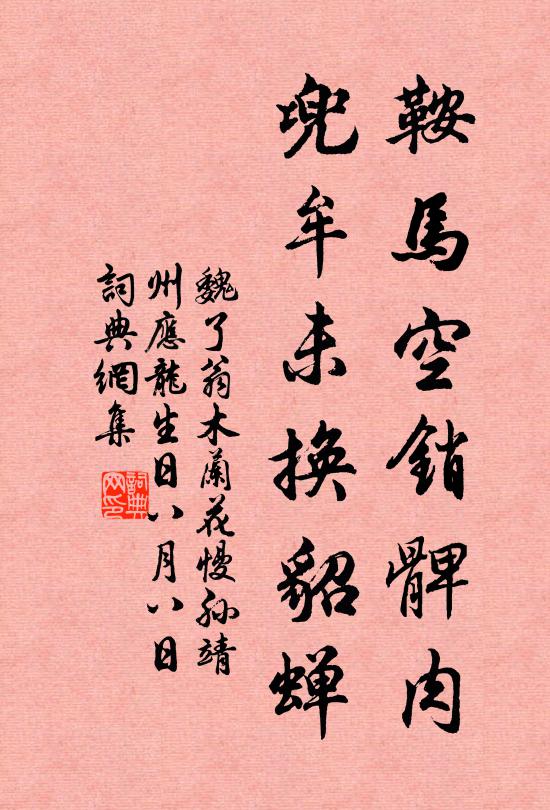 鞍馬空銷髀肉
兜牟未換貂蝉
魏了翁木蘭花慢孙靖
州應龍生日八月八日
詞典網集
詞典
网印